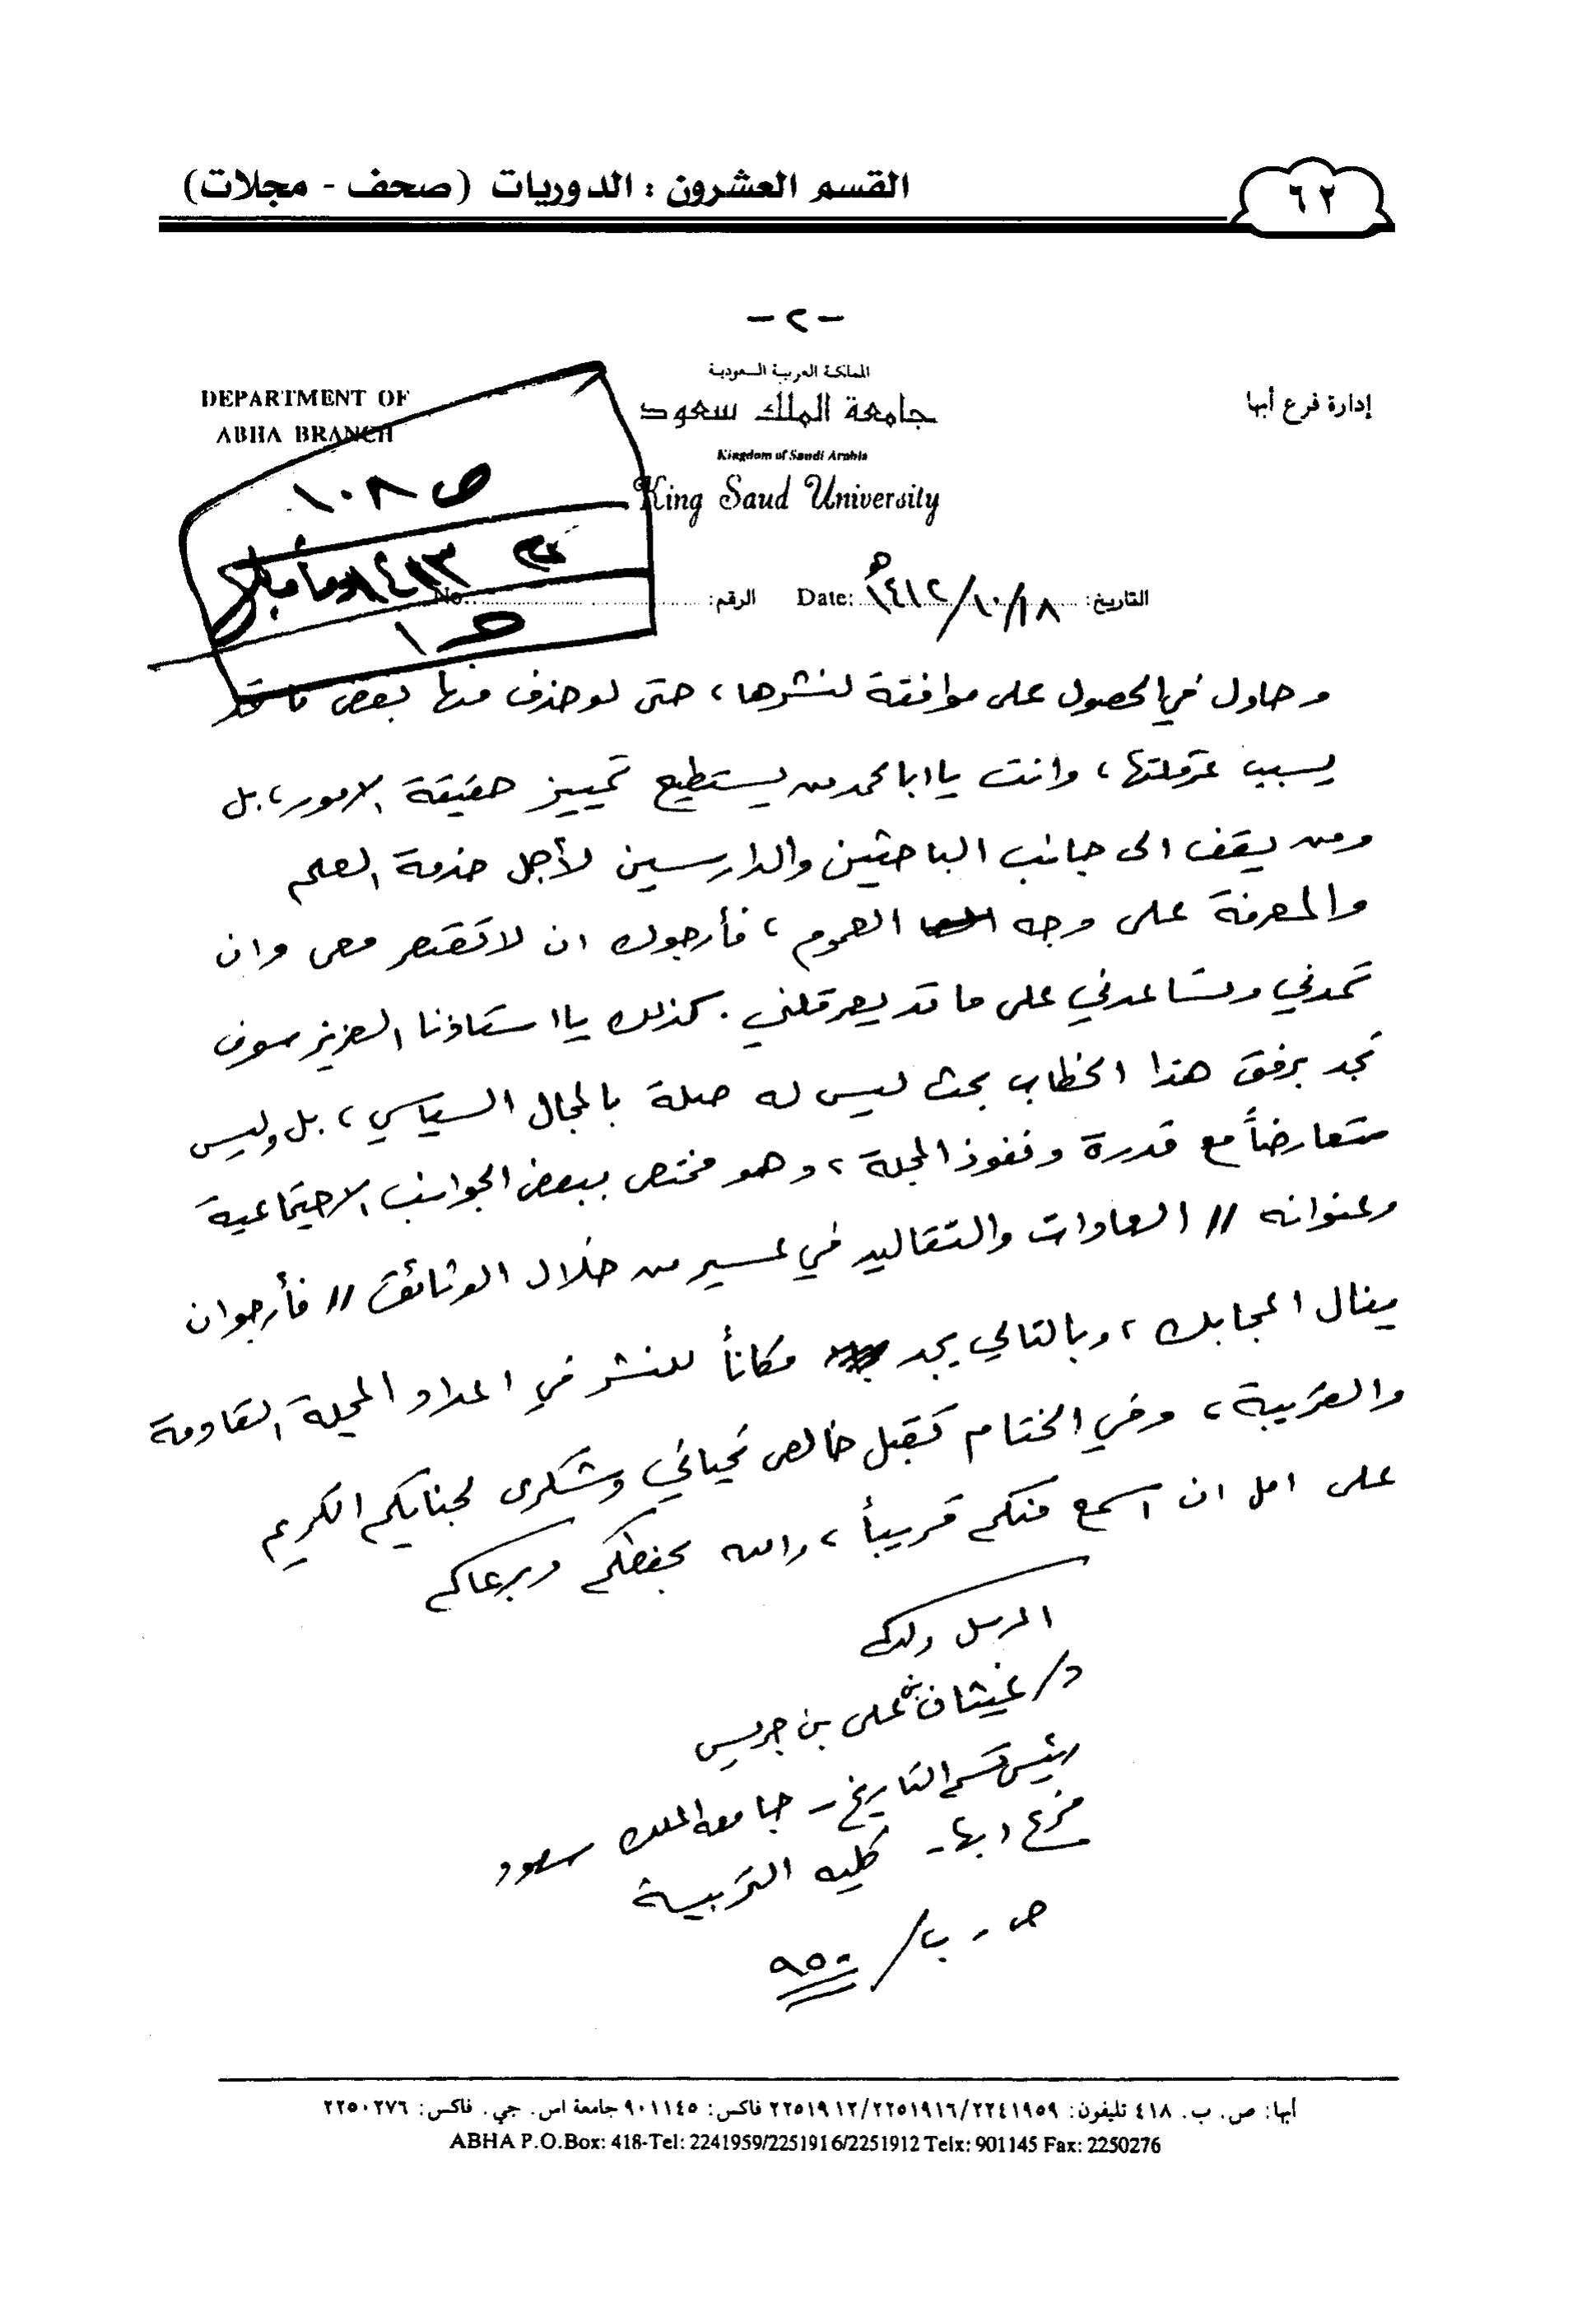 القسم العشرون : الدوريات (صحف - مجلات)
٦٢
- ٢ -
المملكة العربية السعودية
DEPARTMENT OF
جامعة الملك سعود
إدارة فرع أبها
ABHA BRANCH
Kingdom of Saudi Arabia
King Saud University
ص ١٠٨
التاريخ: ١٨/١٠/١٤١٢هـ Date: الرقم: No.
وحاول في الحصول على موافقة لنشرها، حتى لو حذف منها بعض ما قد
يسبب عرقلتها، وانت يا ابا محمد من يستطيع تمييز حقيقة الامور، بل
ومن يقف الى جانب الباحثين والدارسين لأجل خدمة العلم
والمعرفة على وجه العموم، فأرجوك ان لا تقتصر معي وان
تمدني وتساعدني على ما قد يعرقلني. كذلك يا استاذنا العزيز سوف
تجد برفق هذا الخطاب بحث ليس له صلة بالمجال السياسي، بل وليس
متعارضاً مع قدرة ونفوذ المجلة، وهو مختص ببعض الجوانب الاجتماعية
وعنوانه // العادات والتقاليد في عسير من خلال الوثائق // فأرجو ان
ينال اعجابك، وبالتالي يجد مكاناً للنشر في اعداد المجلة القادمة
والقريبة، وفي الختام تقبل خالص تحياتي وشكري لجنابكم الكريم
على امل ان اسمع منكم قريباً، والله يحفظكم ويرعاكم
المرسل ولدكم
د/ غيثان بن علي بن جريس
رئيس قسم التاريخ - جامعة الملك سعود
فرع ابها - كلية التربية
ص. ب/ ٩٥٠
أبها: ص. ب. ٤١٨ تليفون: ٢٢٤١٩٥٩/٢٢٥١٩١٦/٢٢٥١٩١٢ فاكس: ٩٠١١٤٥ جامعة اس. جي. فاكس: ٢٢٥٠٢٧٦
ABHA P.O.Box: 418-Tel: 2241959/2251916/2251912 Telx: 901145 Fax: 2250276